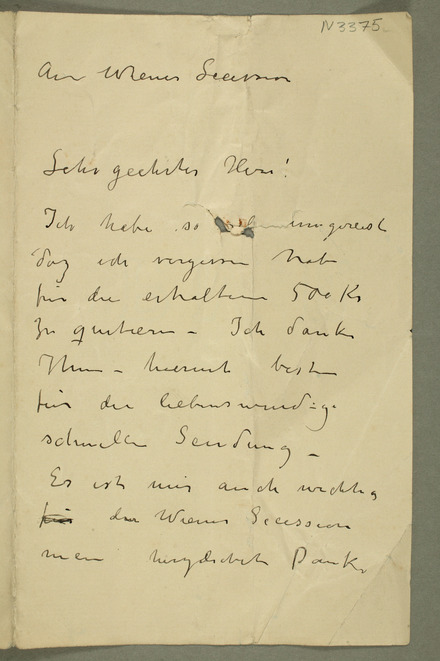 N3375
An Wiener Secession
Sehr geehrter Herr!
Ich habe so herumgereist
daß ich vergessen habe
für die erhaltenen 500 Kr
zu quittieren – Ich danke
Ihnen – hiermit bestens
für die liebenswürdige
schnelle Sendung –
Es ist mir auch wichtig
für der Wiener Secession
mein herzlichst Dank